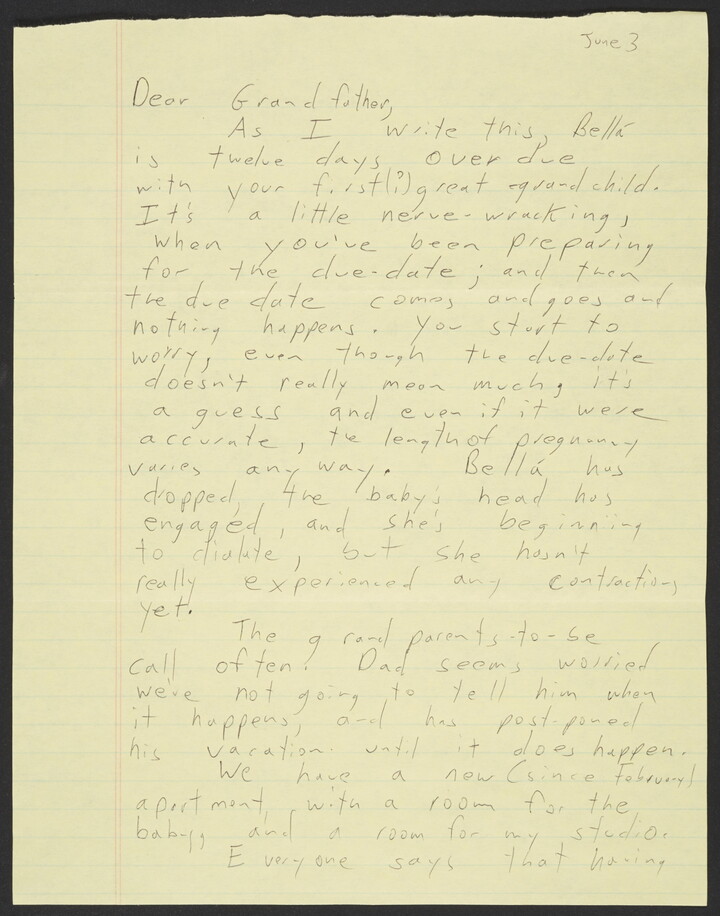 June 3
Dear Grandfather,
As I write this, Bellá
is twelve days overdue
with your first(?) great grandchild.
It's a little nerve-wracking,
when you've been preparing
for the due-date; and then
the due date comes and goes and
nothing happens. You start to
worry, even though the due-date
doesn't really mean much, it's
a guess and even if it were
accurate, the length of pregnancy
varies any way. Bellá has
dropped, the baby's head has
engaged, and she's beginning
to dialate, but she hasn't
really experienced any contractions
yet.
The grandparents-to-be
call often. Dad seems worried
we're not going to tell him when
it happens, and has post-poned
his vacation until it does happen.
We have a new (since February)
apartment, with a room for the
baby, and a room for my studio.
Everyone says that having